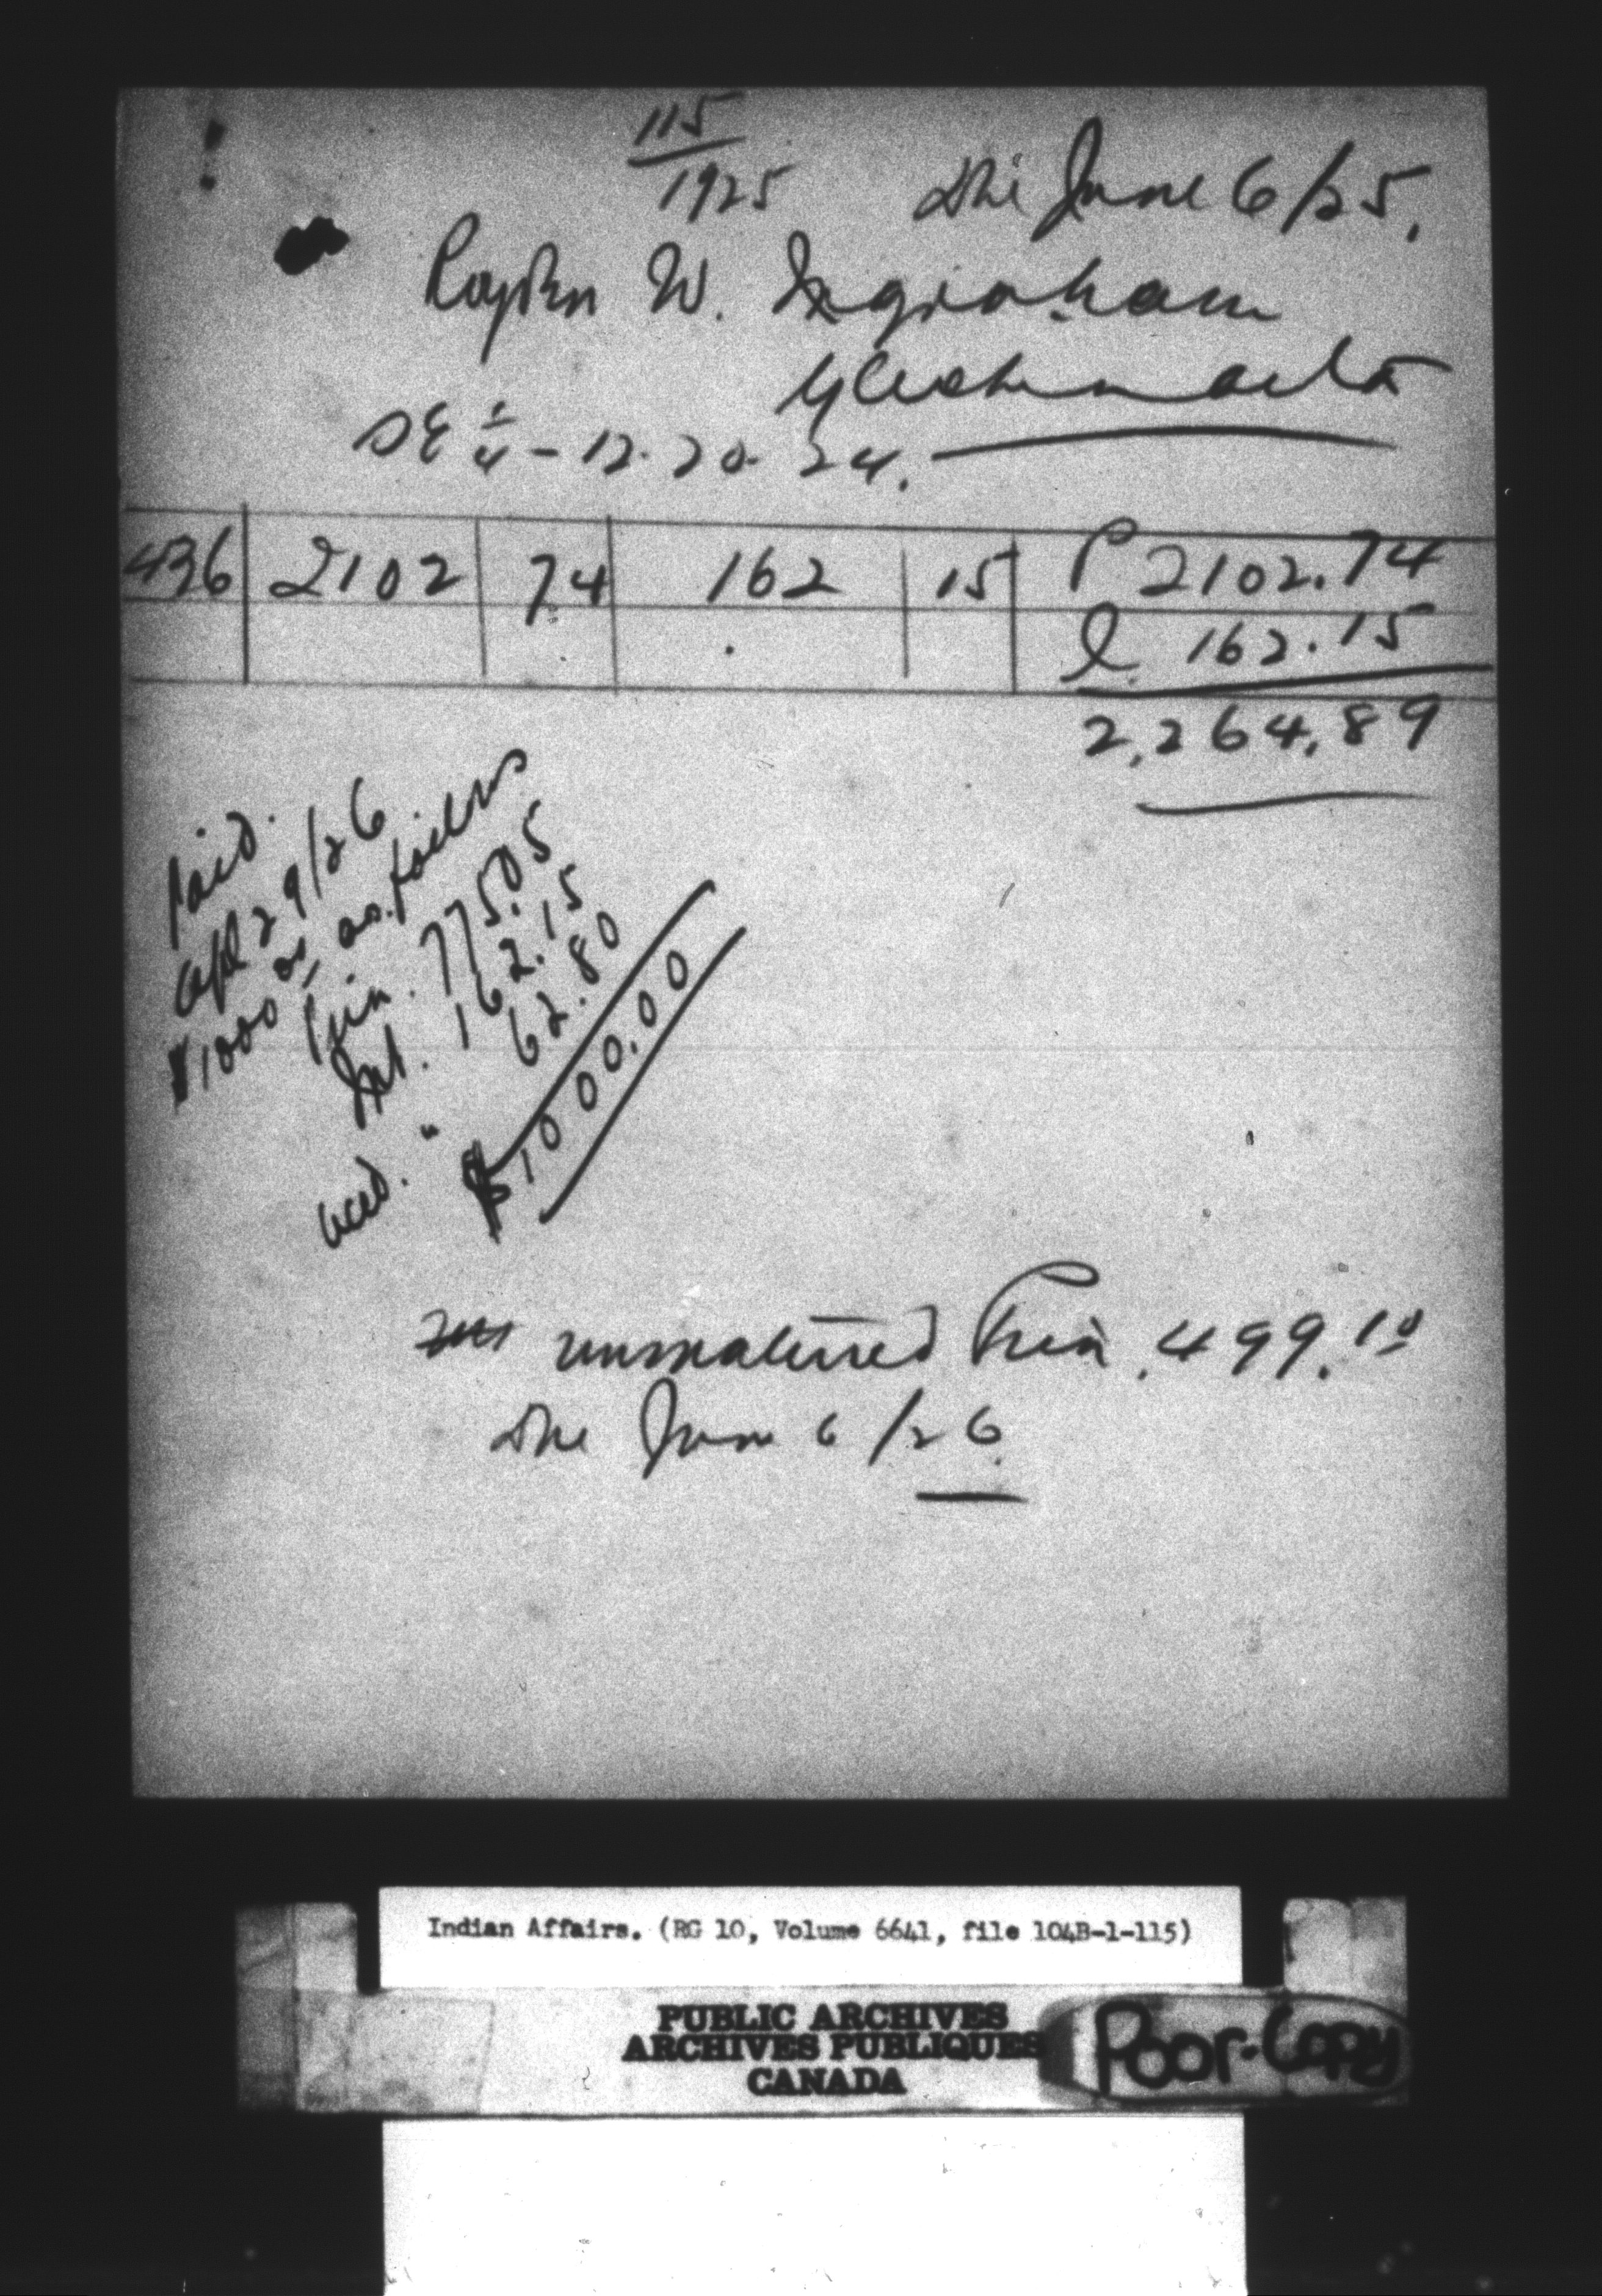 115
1925
Due June 6/25.
W. Ingraham
Gleichen Alta
SE ¼ - 12. 20. 24.
436 2102 74 162 15 P 2102.74
I 162.15
2,264.89
Paid.
Apl 29/26
$1000 00 as follows
Prin. 775.05
Int. 162.15
Accd. " 62.80
$1000.00
unmatured Prin. 499.10
Due June 6/26
Indian Affairs. (RG 10, Volume 6641, file 104B-1-115)
PUBLIC ARCHIVES
ARCHIVES PUBLIQUES
CANADA
Poor-Copy